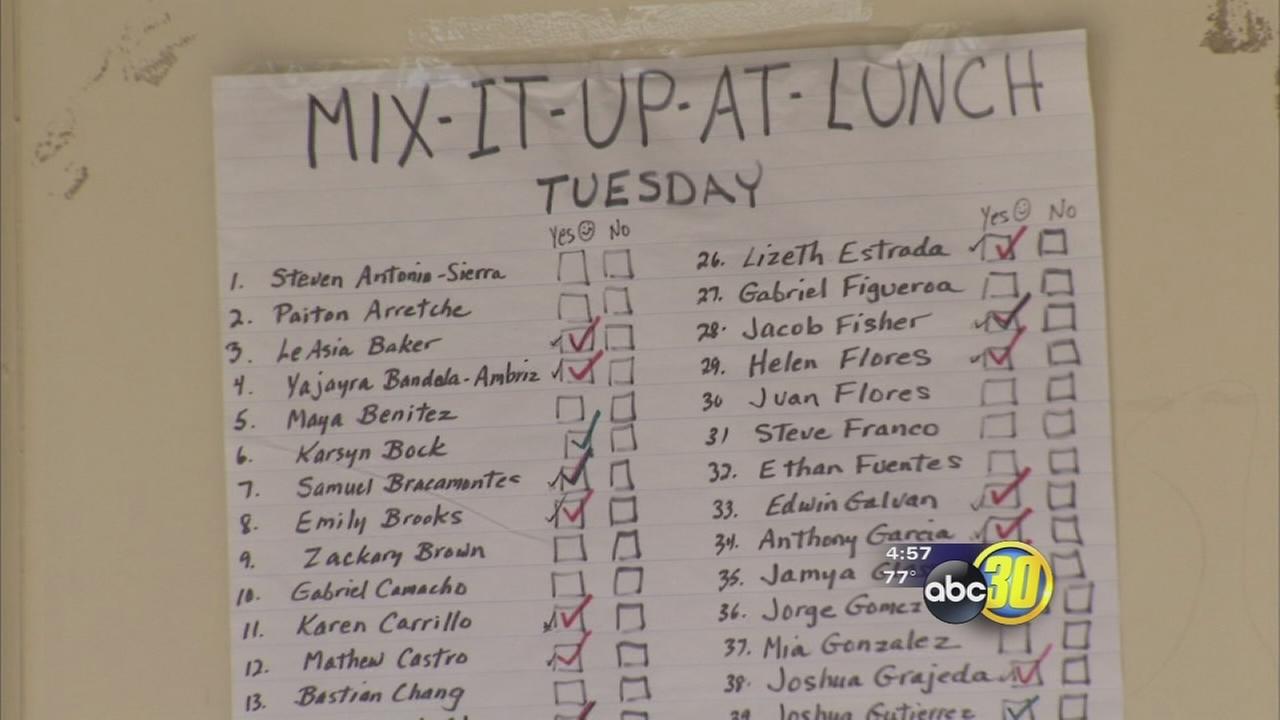 MIX-IT-UP-AT-LUNCH
TUESDAY
Yes No
1. Steven Antonio-Sierra
2. Paiton Arretche
3. LeAsia Baker
4. Yajayra Bandala-Ambriz
5. Maya Benitez
6. Karsyn Bock
7. Samuel Bracamontes
8. Emily Brooks
9. Zackary Brown
10. Gabriel Camacho
11. Karen Carrillo
12. Mathew Castro
13. Bastian Chang
Yes No
26. Lizeth Estrada
27. Gabriel Figueroa
28. Jacob Fisher
29. Helen Flores
30 Juan Flores
31 Steve Franco
32. Ethan Fuentes
33. Edwin Galvan
34. Anthony Garcia
35. Jamya
36. Jorge Gomez
37. Mia Gonzalez
38. Joshua Grajeda
39. Joshua Gutierrez
4:57
77°
abc 30